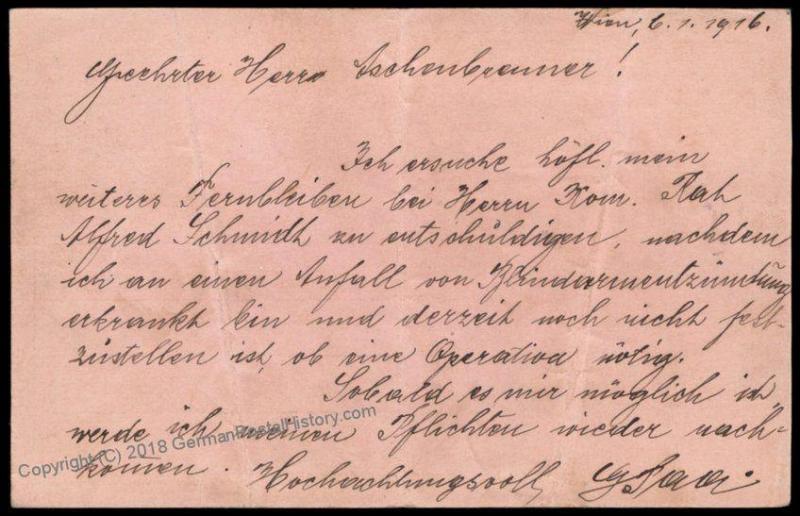 Wien, 6.1.1916.
Geehrter Herr Aschenbrenner!
Ich ersuche höfl. mein
weiteres Fernbleiben bei Herrn Kom. Rat
Alfred Schmidt zu entschuldigen, nachdem
ich an einen Anfall von Blindarmentzündung
erkrankt bin und derzeit noch nicht fest-
zustellen ist, ob eine Operation nötig.
Sobald es mir möglich ist,
werde ich meinen Pflichten wieder nach-
kommen.
Hochachtungsvoll
Copyright (C) 2018 GermanPostalHistory.com